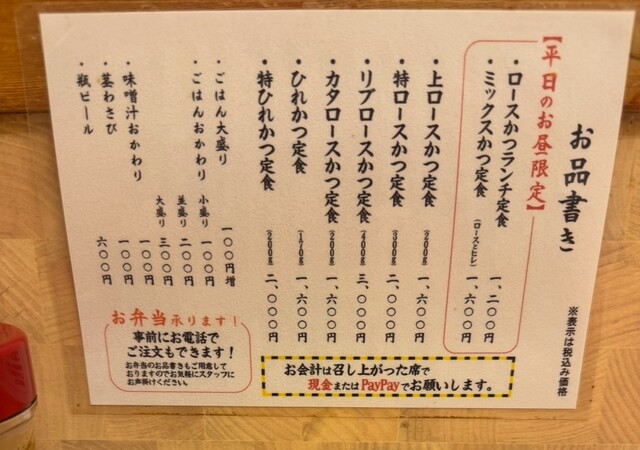 お品書き
※表示は税込み価格
【平日のお昼限定】
・ロースかつランチ定食 一、二〇〇円
・ミックスかつ定食 (ロースとヒレ) 一、六〇〇円
・上ロースかつ定食 (200g) 一、六〇〇円
・特ロースかつ定食 (300g) 二、〇〇〇円
・リブロースかつ定食 (400g) 三、〇〇〇円
・カタロースかつ定食 (200g) 一、六〇〇円
・ひれかつ定食 (170g) 一、六〇〇円
・特ひれかつ定食 (200g) 二、〇〇〇円
・ごはん大盛り 一〇〇円増
・ごはんおかわり 小盛り 一〇〇円
並盛り 二〇〇円
大盛り 三〇〇円
・味噌汁おかわり 一〇〇円
・茎わさび 一〇〇円
・瓶ビール 六〇〇円
お弁当承ります!
事前にお電話で
ご注文もできます!
お弁当のお品書きもご用意して
おりますのでお気軽にスタッフに
お声掛けください。
お会計は召し上がった席で
現金またはPayPayでお願いします。